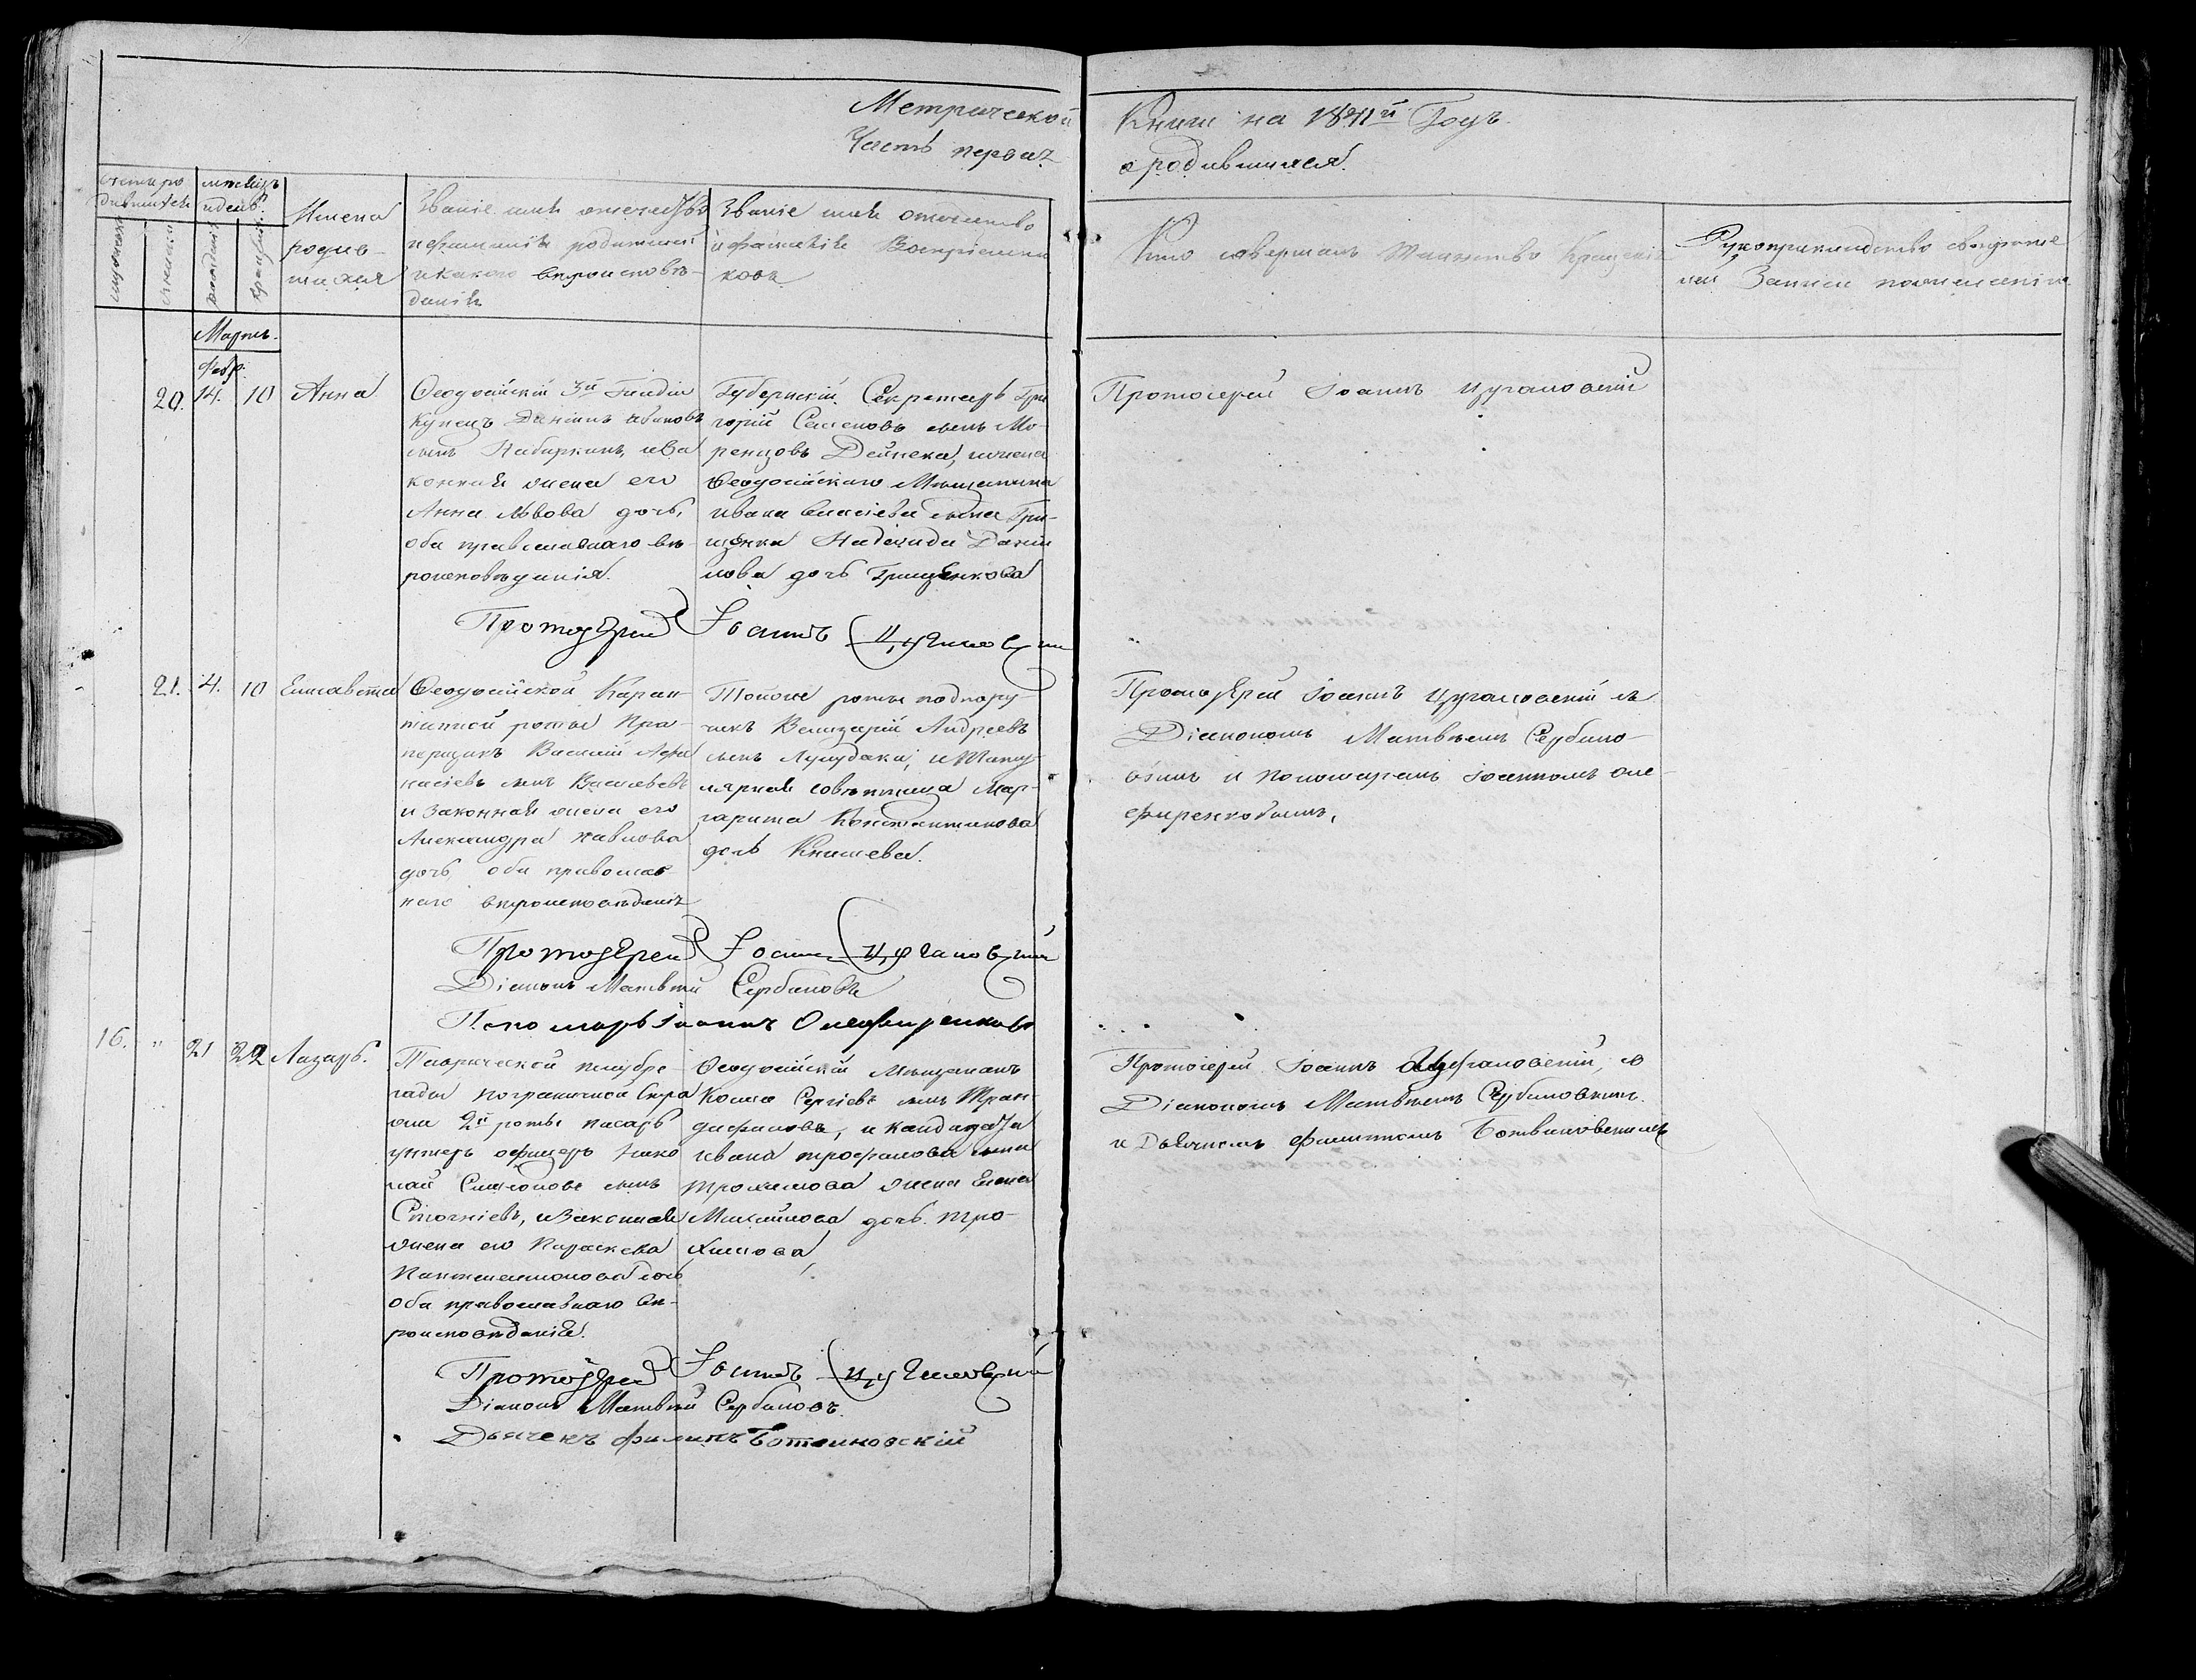 Метрической
Часть первая
Книги на 1841й Годъ
о родившихся.
счетъ ро
дившихся
мѣсяцъ
и день.
мужеска
женска
рожденія
крещенія
Имена
родив-
шихся
Званіе имя отечество
и фамилія родителей
и какого вѣроисповѣ-
данія
Званіе имя отечество
и фамилія Воспріемни
ковъ
Кто совершалъ таинство Крещенія
Рукоприкладство свидѣтелей
Записи по желанію
Мартъ.
Февр.
20. 14. 10 Анна
Ѳеодосійскій 3й Гильдіи
Купецъ Даніилъ Ивановъ
сынъ и за
конная жена его
Анна Львова дочь,
оба православнаго вѣ-
роисповѣданія.
Губернскій Секретарь Гри
горій Семеновъ сынъ
Дейнека, и жена
Ѳеодосійскаго Мѣщанина
Ивана Власіева сына Гри-
щенка Надежда Даніи
лова дочь Грищенкова
Протоіерей Іоаннъ Цугановскій
Протоіерей Іоаннъ Цугановскій
21. 4. 10 Елисавета
Ѳеодосійской Каран-
тинной роты Пра-
порщикъ Василій Аѳа
насіевъ сынъ Василевъ
и Законная жена его
Александра Павлова
дочь, оба православ
наго вѣроисповѣданія
Тойже роты подпору-
чикъ Велизарій Андреевъ
сынъ и Титу-
лярная совѣтница Мар-
гарита Константинова
дочь Княжева.
Протоіерей Іоаннъ Цугановскій съ
Діакономъ Матвѣемъ Сербино-
вымъ и Пономаремъ Іоанномъ Оле-
фиренковымъ,
Протоіерей Іоаннъ Цугановскій
Діаконъ Матвѣй Сербиновъ
Пономарь Іоаннъ Олефиренковъ
16. " 21 22 Лазарь.
Таврической полубри
гады Пограничной Стра
жи 2й роты писарь
унтеръ офицеръ Нико
лай Симеоновъ сынъ
и Законная
жена его Параскева
Пантелеимонова дочь
оба православнаго вѣ-
роисповѣданія.
Ѳеодосійскій Мѣщанинъ
Косма Сергіевъ сынъ Тран-
дафиловъ, и кандидата
Ивана Трофимова сына
Трохимова жена Елена
Михайлова дочь Тро-
химова,
Протоіерей Іоаннъ Цугановскій, съ
Діакономъ Матвѣемъ Сербиновымъ
и Дьячкомъ Филиппомъ Ботвиновскимъ
Протоіерей Іоаннъ Цугановскій
Діаконъ Матвѣй Сербиновъ.
Дьячекъ Филипъ Ботвиновскій